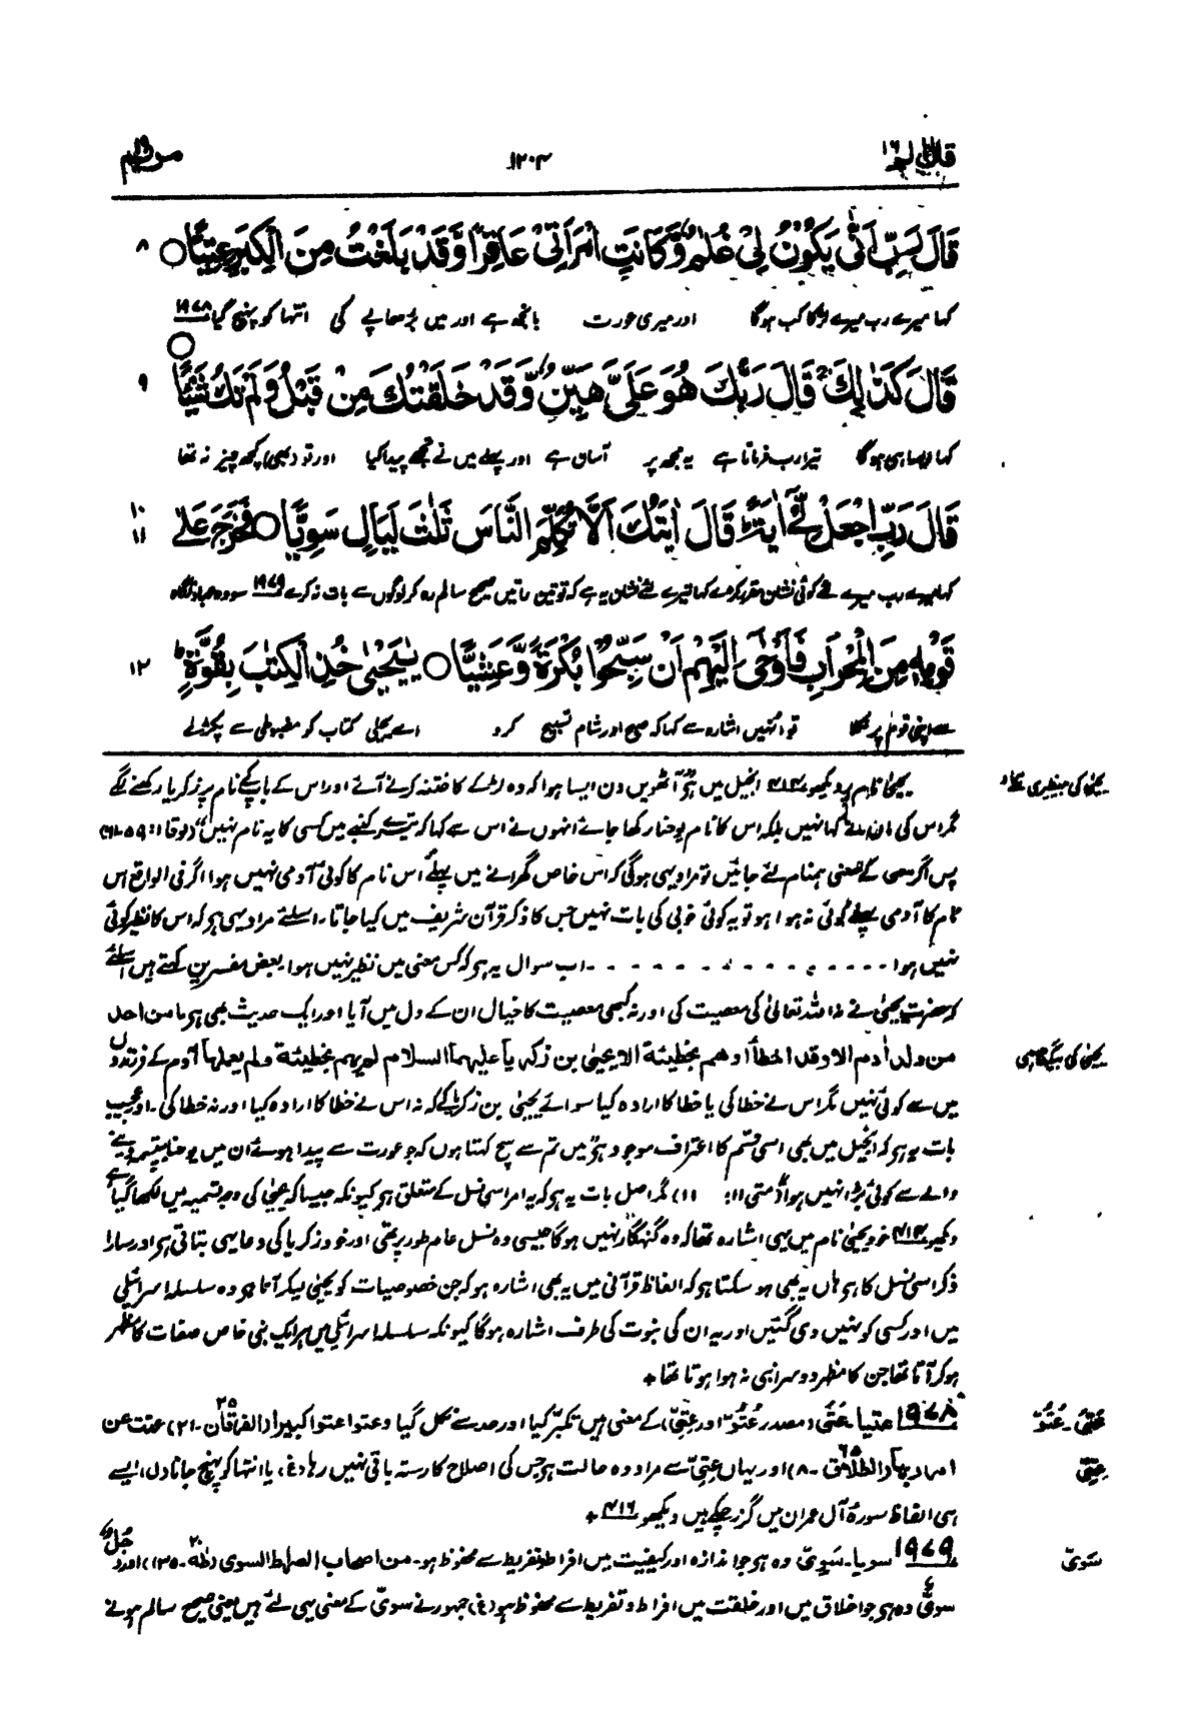 قال الم ١٦
١٢٠٣
مریم ١٩
قَالَ رَبِّ اَنّٰى يَكُوْنُ لِيْ غُلٰمٌ وَّكَانَتِ امْرَاَتِيْ عَاقِرًا وَّقَدْ بَلَغْتُ مِنَ الْكِبَرِ عِتِيًّا ○ ٨
کہا میرے رب میرے لڑکا کب ہوگا اور میری عورت بانجھ ہے اور میں بڑھاپے کی انتہا کو پہنچ گیا ١٩٧٨
قَالَ كَذٰلِكَ ۚ قَالَ رَبُّكَ هُوَ عَلَيَّ هَيِّنٌ وَّقَدْ خَلَقْتُكَ مِنْ قَبْلُ وَلَمْ تَكُ شَيْـًٔا ○ ٩
کہا ایسا ہی ہوگا تیرا رب فرماتا ہے یہ مجھ پر آسان ہے اور پہلے میں نے تجھے پیدا کیا اور تو (بھی) کچھ چیز نہ تھا
قَالَ رَبِّ اجْعَلْ لِّيْ اٰيَةً ؕ قَالَ اٰيَتُكَ اَلَّا تُكَلِّمَ النَّاسَ ثَلٰثَ لَيَالٍ سَوِيًّا ○ فَخَرَجَ عَلٰى ١٠ ١١
کہا میرے رب میرے لئے کوئی نشان مقرر کر دے کہا تیرے لئے نشان یہ ہے کہ تو تین راتیں صحیح سالم رہ کر لوگوں سے بات نہ کرے ١٩٧٩ سو وہ عبادتگاہ
قَوْمِهٖ مِنَ الْمِحْرَابِ فَاَوْحٰۤى اِلَيْهِمْ اَنْ سَبِّحُوْا بُكْرَةً وَّعَشِيًّا ○ يٰيَحْيٰى خُذِ الْكِتٰبَ بِقُوَّةٍ ؕ ١٢
سے اپنی قوم پر نکلا تو انہیں اشارہ سے کہا کہ صبح اور شام تسبیح کرو اے یحییٰ کتاب کو مضبوطی سے پکڑ لے
یحییٰ نام پر دیکھو ٤١٤ انجیل میں ہے آٹھویں دن ایسا ہوا کہ وہ لڑکے کا ختنہ کرنے آئے اور اس کے باپ کے نام پر زکریا رکھنے لگے
مگر اس کی ماں نے کہا نہیں بلکہ اس کا نام یوحنا رکھا جائے انہوں نے اس سے کہا کہ تیرے کنبے میں کسی کا یہ نام نہیں" (لوقا ١: ٥٩-٦١)
پس اگر سمی کے معنی ہمنام لئے جائیں تو مراد یہی ہوگی کہ اس خاص گھرانے میں پہلے اس نام کا کوئی آدمی نہیں ہوا اگر فی الواقع اس
نام کا آدمی پہلے کوئی نہ ہوا ہو تو یہ کوئی خوبی کی بات نہیں جس کا ذکر قرآن شریف میں کیا جاتا۔ اسلئے مراد یہی ہے کہ اس کا نظیر کوئی
نہیں ہوا ۔ ۔ ۔ ۔ ۔ ۔ ۔ ۔ ۔ ۔ اب سوال یہ ہے کہ کس معنی میں نظیر نہیں ہوا۔ بعض مفسرین کہتے ہیں اسلئے
کہ حضرت یحییٰ نے نہ اللہ تعالیٰ کی معصیت کی اور نہ کبھی معصیت کا خیال ان کے دل میں آیا اور ایک حدیث بھی ہے ما من احد
من ولد اٰدم الا وقد اخطأ او هم بخطیئة الا یحیٰی بن زکریا علیہما السلام لم یهم بخطیئة ولم یعملها آدم کے فرزندوں
میں سے کوئی نہیں مگر اس نے خطا کی یا خطا کا ارادہ کیا سوائے یحییٰ بن زکریا کے کہ نہ اس نے خطا کا ارادہ کیا اور نہ خطا کی۔ اور عجیب
بات یہ ہے کہ انجیل میں بھی اسی قسم کا اعتراف موجود ہے "میں تم سے سچ کہتا ہوں کہ جو عورت سے پیدا ہوئے ان میں یوحنا بپتسمہ دینے
والے سے کوئی بڑا نہیں ہوا" (متی ١١: ١١) مگر اصل بات یہ ہے کہ یہ امر اسی نسل کے متعلق ہے کیونکہ جیسا کہ یحییٰ کی وجہ تسمیہ میں لکھا گیا ہے
دیکھو ٤١٤ خود یحییٰ نام میں یہی اشارہ تھا کہ وہ گنہگار نہیں ہوگا جیسی وہ نسل عام طور پر تھی اور خود زکریا کی دعا یہی بتاتی ہے اور سارا
ذکر اسی نسل کا ہے ہاں یہ بھی ہو سکتا ہے کہ الفاظ قرآنی میں یہ بھی اشارہ ہو کہ جن خصوصیات کو یحییٰ لیکر آتا ہے وہ سلسلہ اسرائیلی
میں اور کسی کو نہیں دی گئیں اور یہ ان کی نبوت کی طرف اشارہ ہوگا کیونکہ سلسلہ اسرائیلی میں ہر ایک نبی خاص صفات کا مظہر
ہو کر آتا تھا جن کا مظہر دوسرا نبی نہ ہوا ہوتا تھا +
١٩٧٨ عتیا۔ عَتٰی (مصدر عُتُوّ اور عِتِیّ) کے معنی ہیں تکبر کیا اور حد سے نکل گیا وعتوا عتوا کبیرا (الفرقان ٢٥۔٢١) عتت عن
امر ربها (الطلاق ٦٥۔٨) اور یہاں عتِیّ سے مراد وہ حالت ہے جس کی اصلاح کا رستہ باقی نہیں رہا (غ)، یا انتہا کو پہنچ جانا (ل)، ایسے
ہی الفاظ سورۂ آل عمران میں گزر چکے ہیں دیکھو ٤١٦ +
١٩٧٩ سویا۔ سَوِیّ وہ ہے جو اندازہ اور کیفیت میں افراط و تفریط سے محفوظ ہو۔ من اصحاب الصراط السوی (طٰہٰ ٢٠۔ ١٣٥) اور رَجُلٌ
سویٌّ وہ ہے جو اخلاق میں اور خلقت میں افراط و تفریط سے محفوظ ہو (غ) جمہور نے سویّ کے معنی یہی لئے ہیں یعنی صحیح سالم ہونے
یحییٰ کی بیگناہی
عَتٰی۔ عُتُوّ
عِتِیّ
سَوِیّ